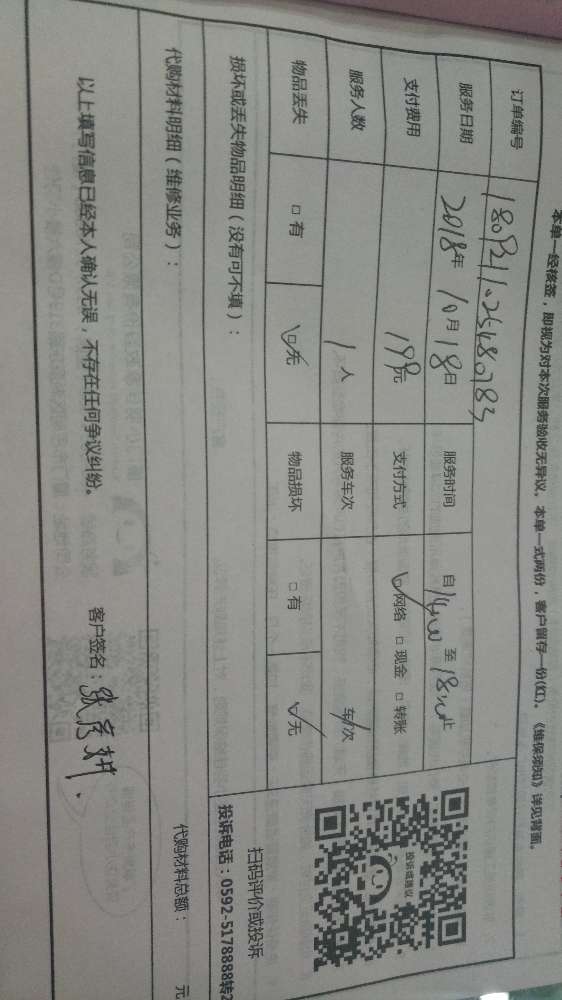 本单一经核签，即视为对本次服务验收无异议。本单一式两份，客户留存一份(红)。《维保须知》详见背面。
订单编号
服务日期 2018年 10月 18日 服务时间 自 14:00 至 18:00 止
支付费用 199元 支付方式 网络 □ 现金 □ 转账
服务人数 1人 服务车次 车/次
物品丢失 □ 有 无 物品损坏 □ 有 无
投诉或建议
扫码评价或投诉
投诉电话：0592-5178888转2
损坏或丢失物品明细（没有可不填）：
代购材料明细（维修业务）：
代购材料总额： 元
以上填写信息已经本人确认无误，不存在任何争议纠纷。 客户签名：